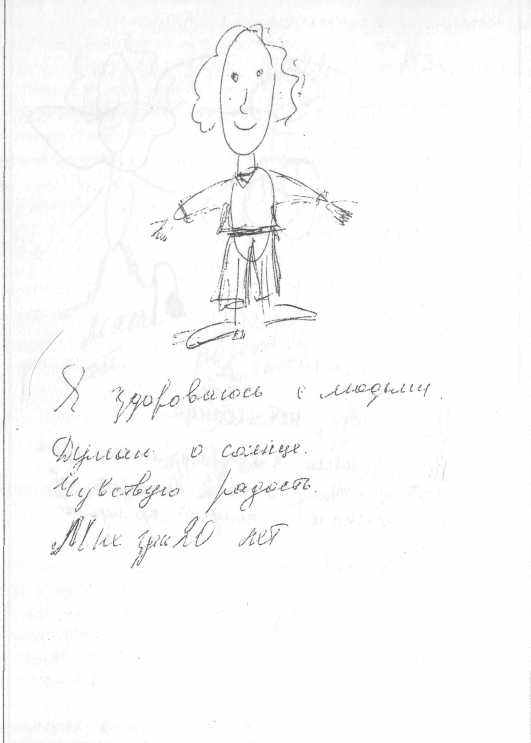 Я здороваюсь с людьми.
Думаю о солнце.
Чувствую радость.
Мне 20 лет